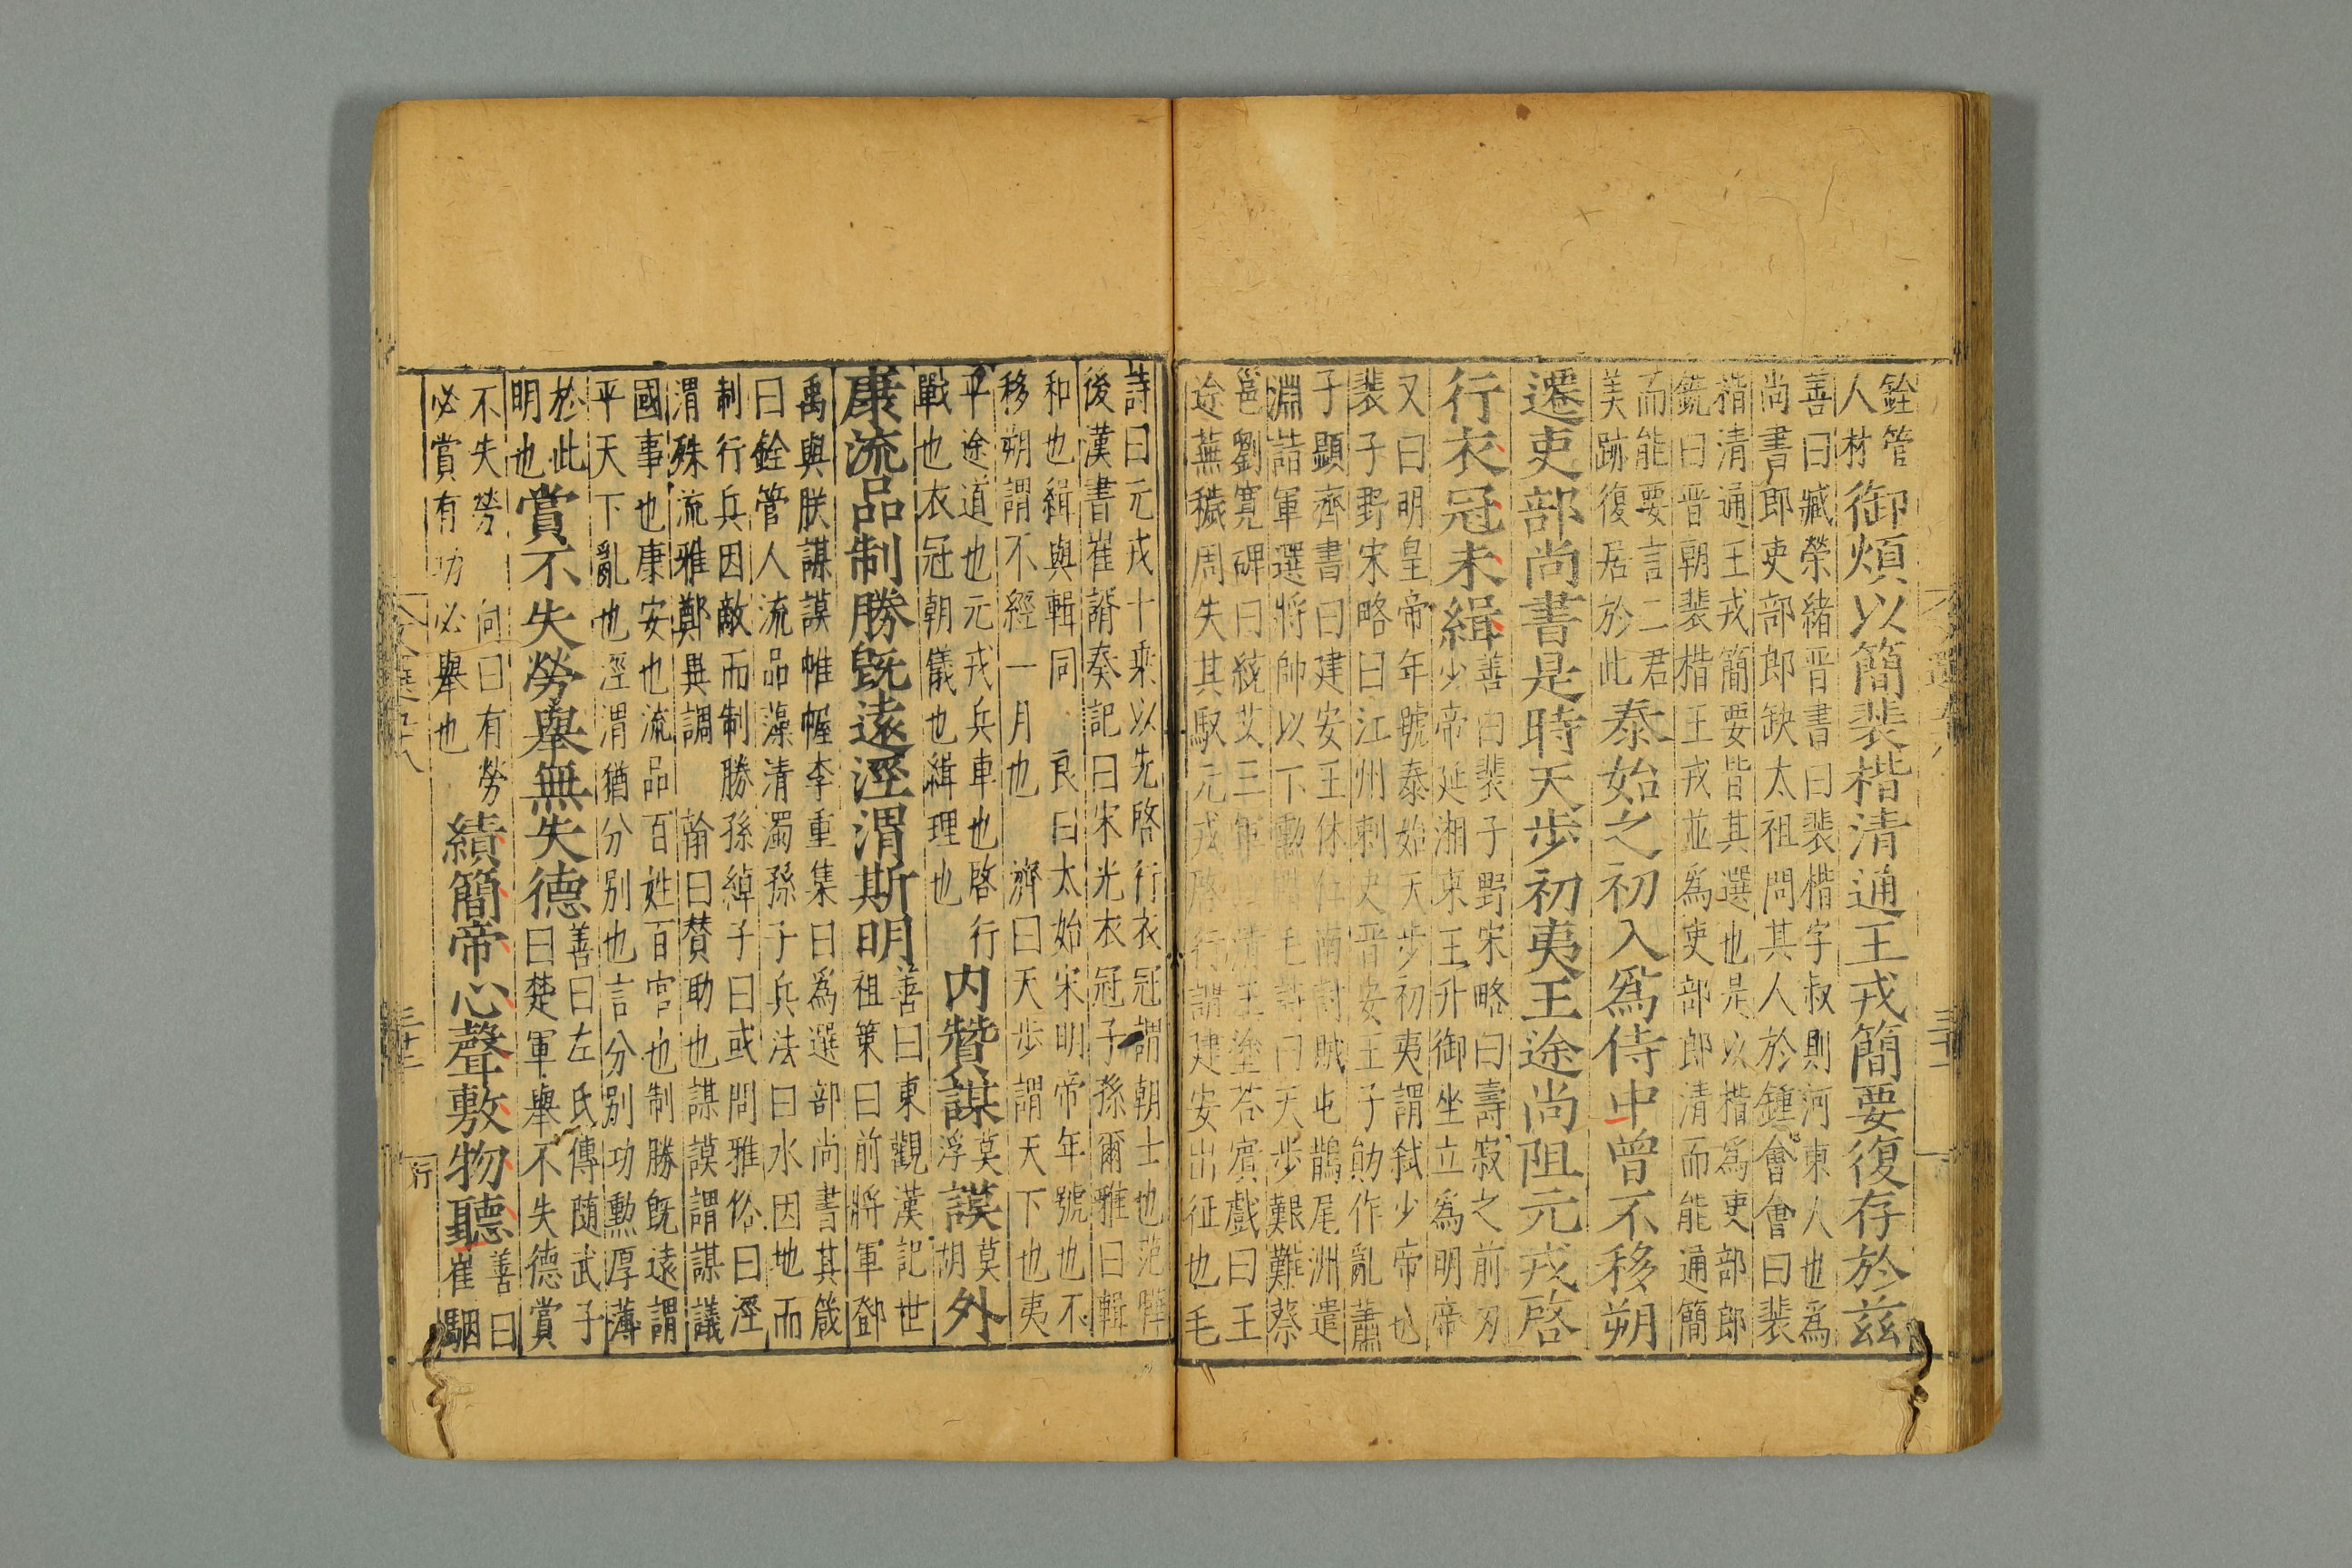 銓管
人材御煩以簡裴楷清通王戎簡要復存於茲
善曰臧榮緒晉書曰裴楷字叔則河東人也為
尚書郎吏部郎缺太祖問其人於鍾會會曰裴
楷清通王戎簡要皆其選也是以楷為吏部郎
銑曰晉朝裴楷王戎並為吏部郎清而能通簡
而能要言二君
美跡復居於此泰始之初入為侍中曾不移朔
遷吏部尚書是時天步初夷王途尚阻元戎啓
行衣冠未緝善曰裴子野宋略曰壽寂之前刃
少帝延湘東王升御坐立為明帝
又曰明皇帝年號泰始天步初夷謂弒少帝也
裴子野宋略曰江州刺史晉安王子勛作亂蕭
子顯齊書曰建安王休仁南討賊屯鵲尾洲遣
淵詰軍選將帥以下勳階毛詩曰天步艱難蔡
邕劉寬碑曰統艾三軍清王塗荅賓戲曰王
途蕪穢周失其馭元戎啓行謂建安出征也毛
詩曰元戎十乘以先啓行衣冠謂朝士也范曄
後漢書崔謂奏記曰宋光衣冠子孫爾雅曰輯
和也緝與輯同 良曰太始宋明帝年號也不
移朔謂不經一月也 濟曰天步謂天下也夷
平途道也元戎兵車也啓行
戰也衣冠朝儀也緝理也內贊謀莫浮謨莫胡外
康流品制勝既遠涇渭斯明善曰東觀漢記世
祖策曰前將軍鄧
禹與朕謀謨帷幄李重集曰為選部尚書其箴
曰銓管人流品藻清濁孫子兵法曰水因地而
制行兵因敵而制勝孫綽子曰或問雅俗曰涇
渭殊流雅鄭異調 翰曰贊助也謀謨謂謀議
國事也康安也流品百姓百官也制勝既遠謂
平天下亂也涇渭猶分別也言分別功勳厚薄
於此
明也賞不失勞舉無失德善曰左氏傳隨武子
曰楚軍舉不失德賞
不失勞 向曰有勞
必賞有功必舉也績簡帝心聲敷物聽善曰
崔駰
三十一
三十二
行